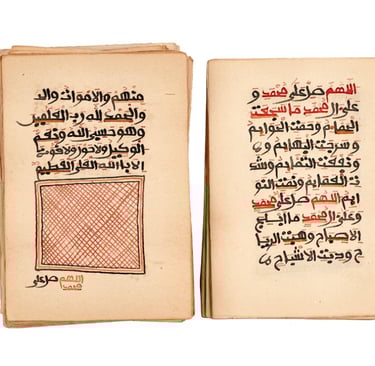 منهم والاموات وال
والحمد لله رب العلمين
وهو حسبي الله ونعم
الوكيل ولا حول ولا قوة
الا بالله العلي العظيم
اللهم صل على
محمد
اللهم صل على محمد و
على ال محمد ما سجعت
الحمايم وحمت الحوايم
و سرحت البهايم و
نفعت التمايم وشد
ت العمايم ونمت النو
ايم اللهم صل على محمد
وعلى ال محمد ما ابلج
الاصباح وهبت الريا
ح ودبت الاشباح و